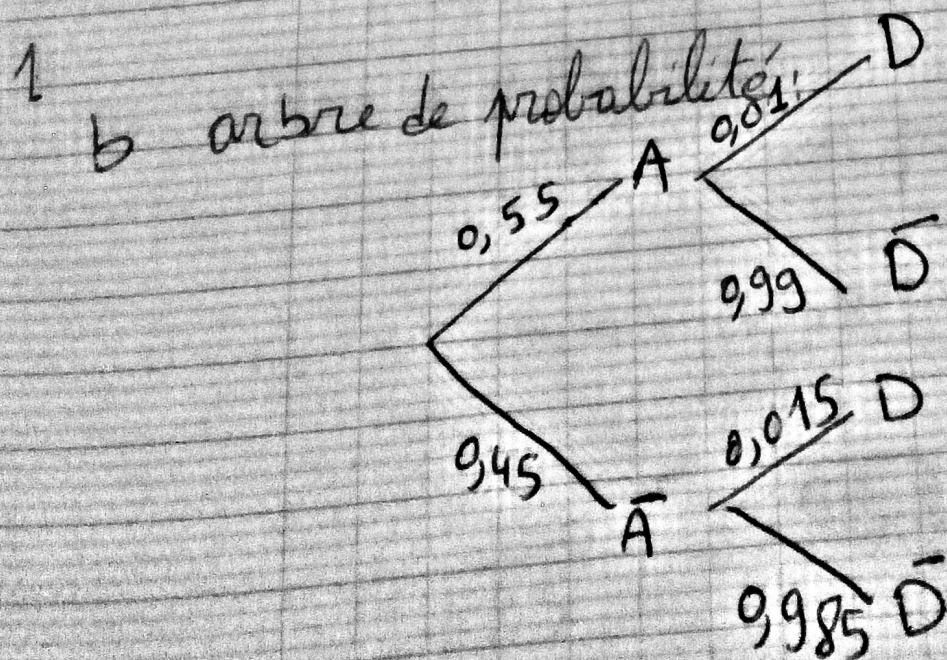 1
b arbre de probabilité:
0,01 D
A
0,55
0,99 D̅
0,45
0,015 D
A̅
0,985 D̅